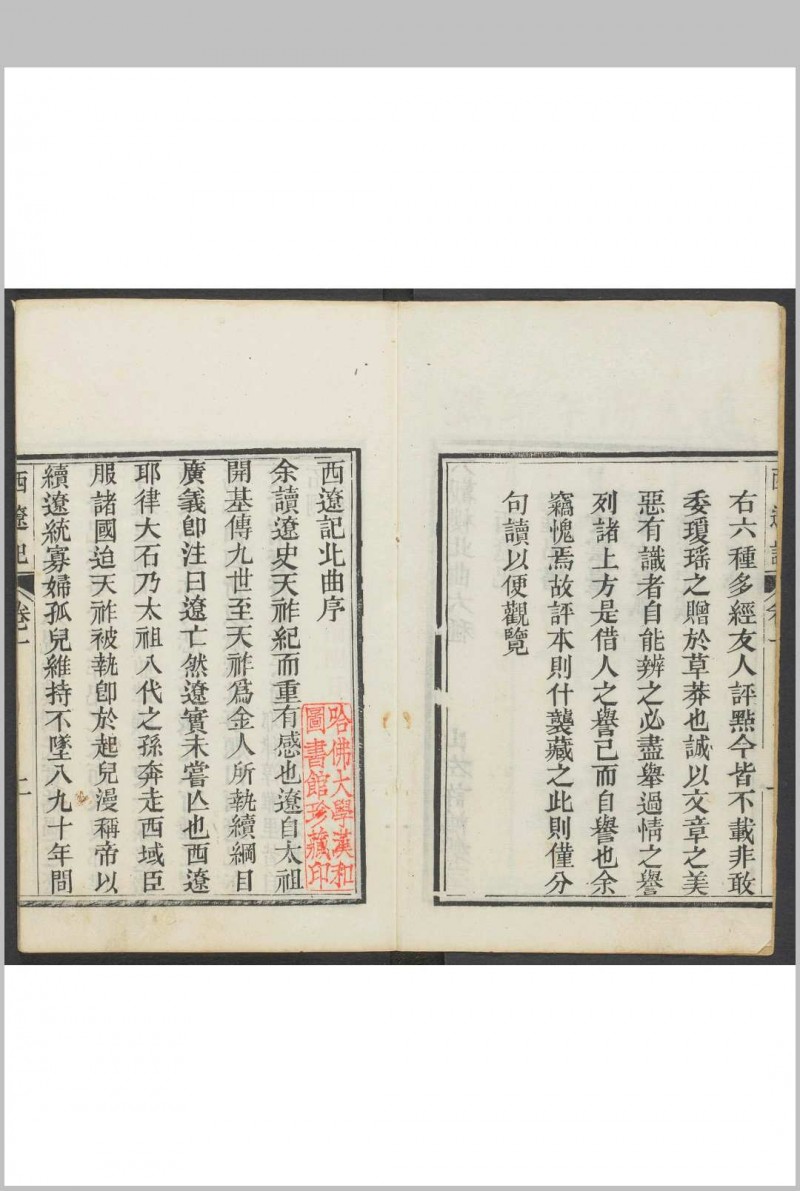 右六種多經友人評點今皆不載非敢
委瓊瑤之贈於草莽也誠以文章之美
惡有識者自能辨之必盡舉過情之譽
列諸上方是借人之譽己而自譽也余
竊愧焉故評本則什襲藏之此則僅分
句讀以便觀覽
西遼記北曲序
余讀遼史天祚紀而重有感也遼自太祖
開基傳九世至天祚爲金人所執續綱目
廣義卽注曰遼亡然遼實未嘗亾也西遼
耶律大石乃太祖八代之孫奔走西域臣
服諸國迫天祚被執卽於起兒漫稱帝以
續遼統寡婦孤兒維持不墜八九十年間
哈佛大學漢和
圖書館珍藏印
西遼記
卷一